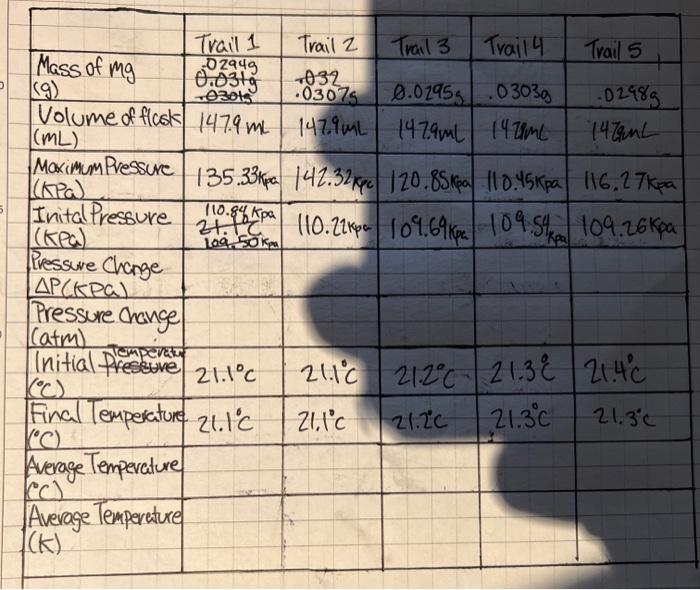 Trail 1 Trail 2 Trail 3 Trail 4 Trail 5
Mass of mg
(g)
.0294g
0.031g
.0301g
.032
.0307g
0.0295g .0303g .0298g
Volume of flask
(mL)
147.9 mL 147.9mL 147.9mL 147.9mL 147.9mL
Maximum Pressure
(KPa)
135.33Kpa 142.32Kpa 120.85Kpa 110.45Kpa 116.27Kpa
Inital Pressure
(KPa)
110.84 Kpa
21.1°C
109.50 Kpa
110.22Kpa 109.69Kpa 109.54Kpa 109.26Kpa
Pressure Change
ΔP(KPa)
Pressure change
(atm)
Temperature
Initial Pressure
(°C)
21.1°C 21.1°C 21.2°C 21.3° 21.4°C
Final Temperature
(°C)
21.1°C 21.1°C 21.2°C 21.3°C 21.3°C
Average Temperature
(°C)
Average Temperature
(K)